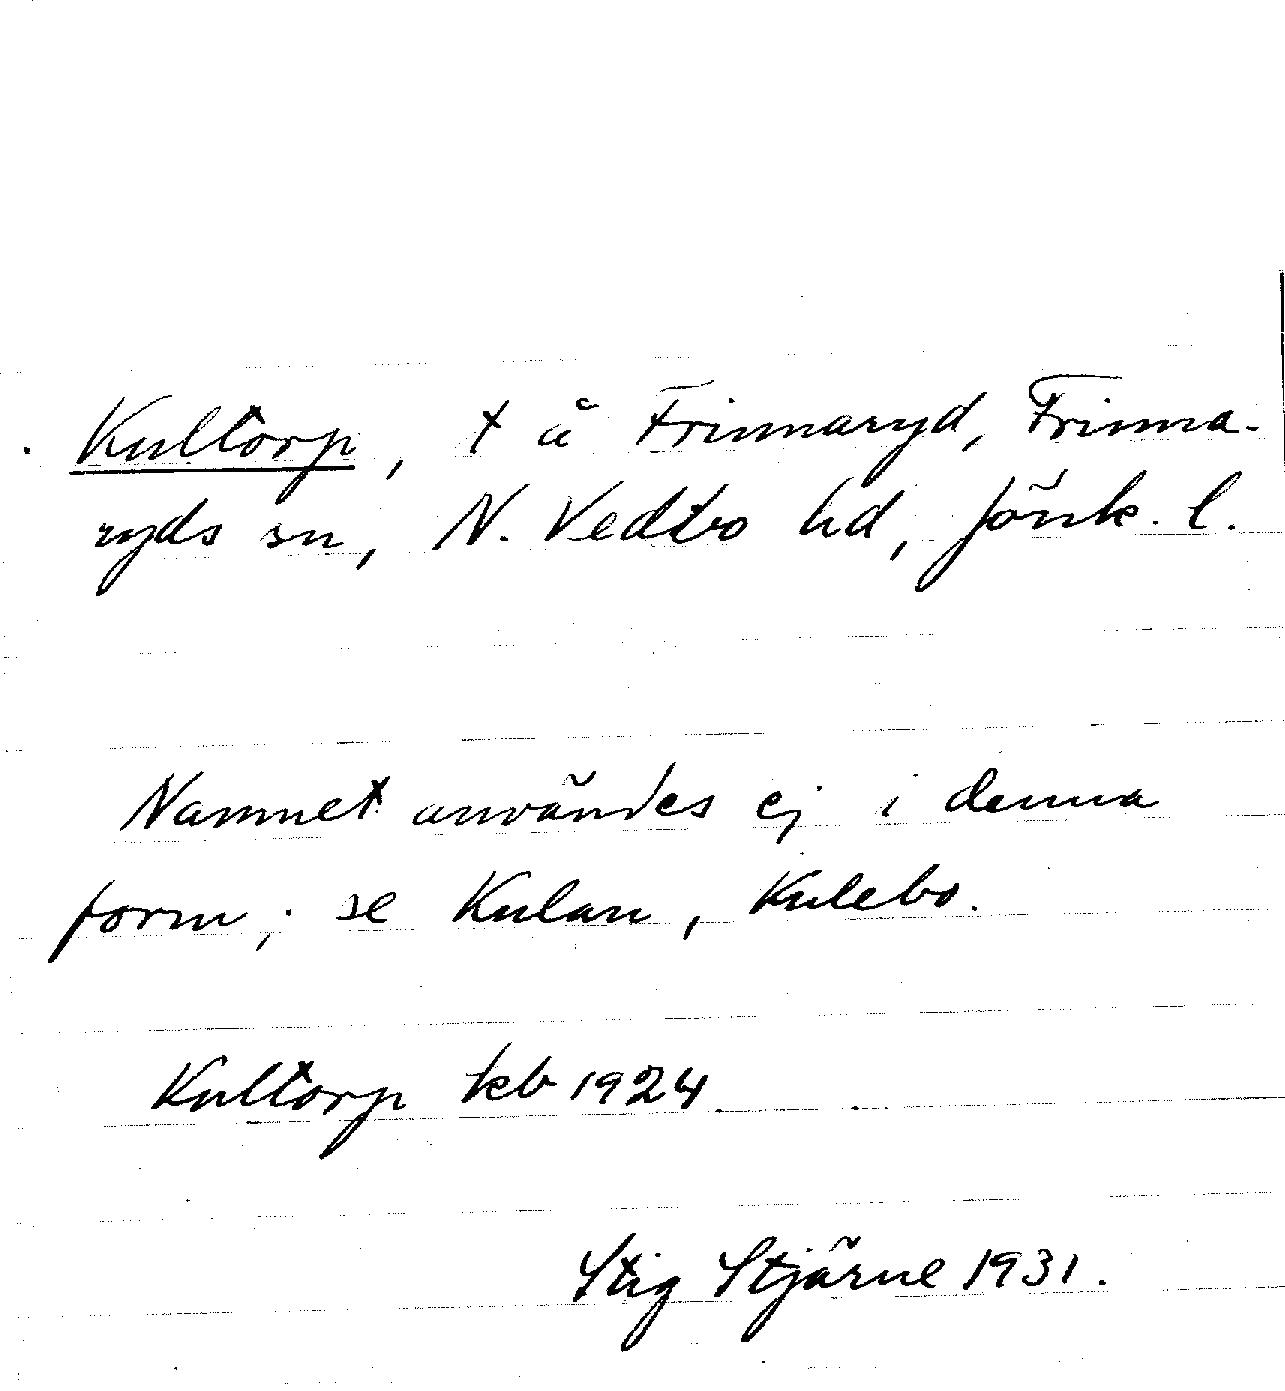 Kultorp, t å Frinnaryd, Frinna-
ryds sn, N. Vedbo hd, Jönk. l.
Namnet användes ej i denna
form; se Kulan, Kulebo.
Kultorp kb 1924
Stig Stjärne 1931.